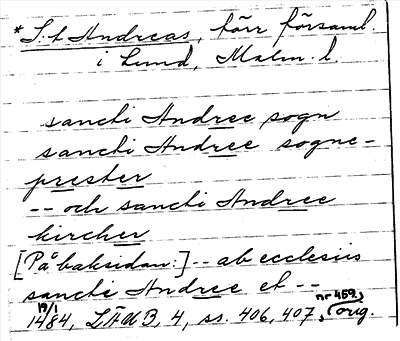 * S:t Andreas, förr församl.
i Lund, Malm. l.
sancti Andree sogn
sancti Andree sogne-
prester
-- och sancti Andree
kircher
[På baksidan:] -- ab ecclesiis
sancti Andree et --
19/1 1484, LÄUB, 4, ss. 406, 407, nr 459, orig.